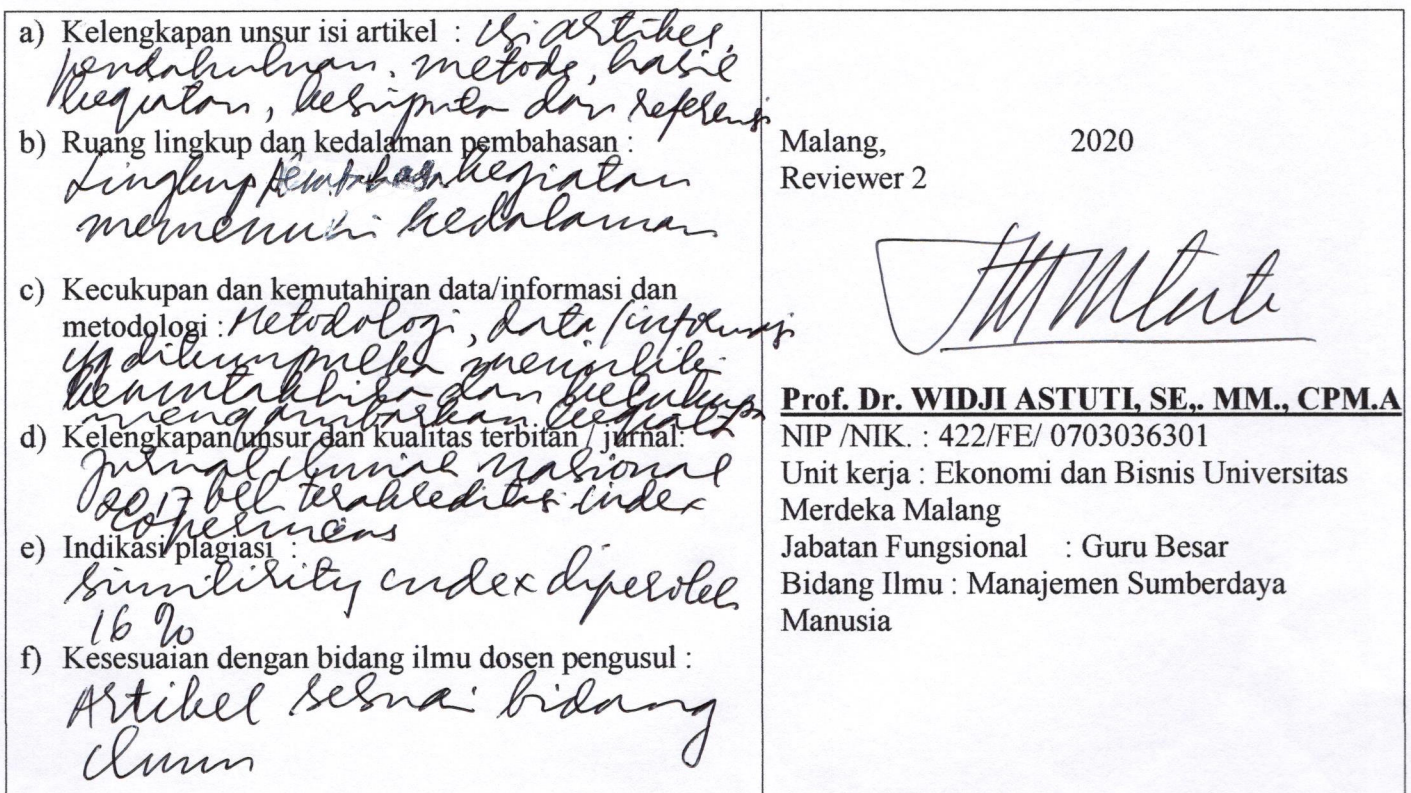 a) Kelengkapan unsur isi artikel : isi artikel,
pendahuluan, metode, hasil
kegiatan, kesimpulan dan referensi
b) Ruang lingkup dan kedalaman pembahasan :
Lingkup pembahasan kegiatan
memenuhi kedalaman
c) Kecukupan dan kemutahiran data/informasi dan
metodologi : Metodologi, data/informasi
yg dikumpulkan memiliki
kemutakhiran dan
menggambarkan kegiatan
d) Kelengkapan unsur dan kualitas terbitan / jurnal:
Jurnal ilmiah nasional
2017 terakreditasi index
copernicus
e) Indikasi plagiasi :
similirity index diperoleh
16 %
f) Kesesuaian dengan bidang ilmu dosen pengusul :
Artikel sesuai bidang
ilmu
Malang, 2020
Reviewer 2
Prof. Dr. WIDJI ASTUTI, SE,. MM., CPM.A
NIP /NIK. : 422/FE/ 0703036301
Unit kerja : Ekonomi dan Bisnis Universitas
Merdeka Malang
Jabatan Fungsional : Guru Besar
Bidang Ilmu : Manajemen Sumberdaya
Manusia